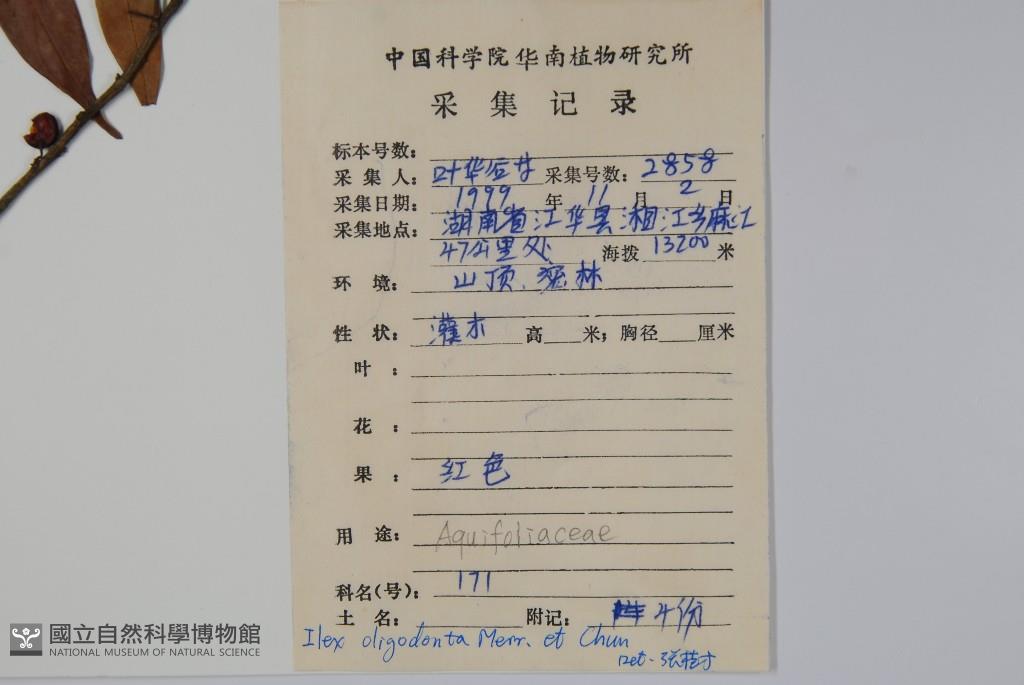 中国科学院华南植物研究所
采集记录
标本号数:
采集人: 叶华谷 采集号数: 2858
采集日期: 1999 年 11 月 2 日
采集地点: 湖南省江华县湘江乡麻江
47公里处 海拨 13200 米
环境: 山顶、密林
性状: 灌木 高 米; 胸径 厘米
叶:
花:
果: 红色
用途: Aquifoliaceae
科名(号): 171
土名: 附记: 4份
Ilex oligodonta Merr. et Chun
Det. 张桂才
國立自然科學博物館
NATIONAL MUSEUM OF NATURAL SCIENCE